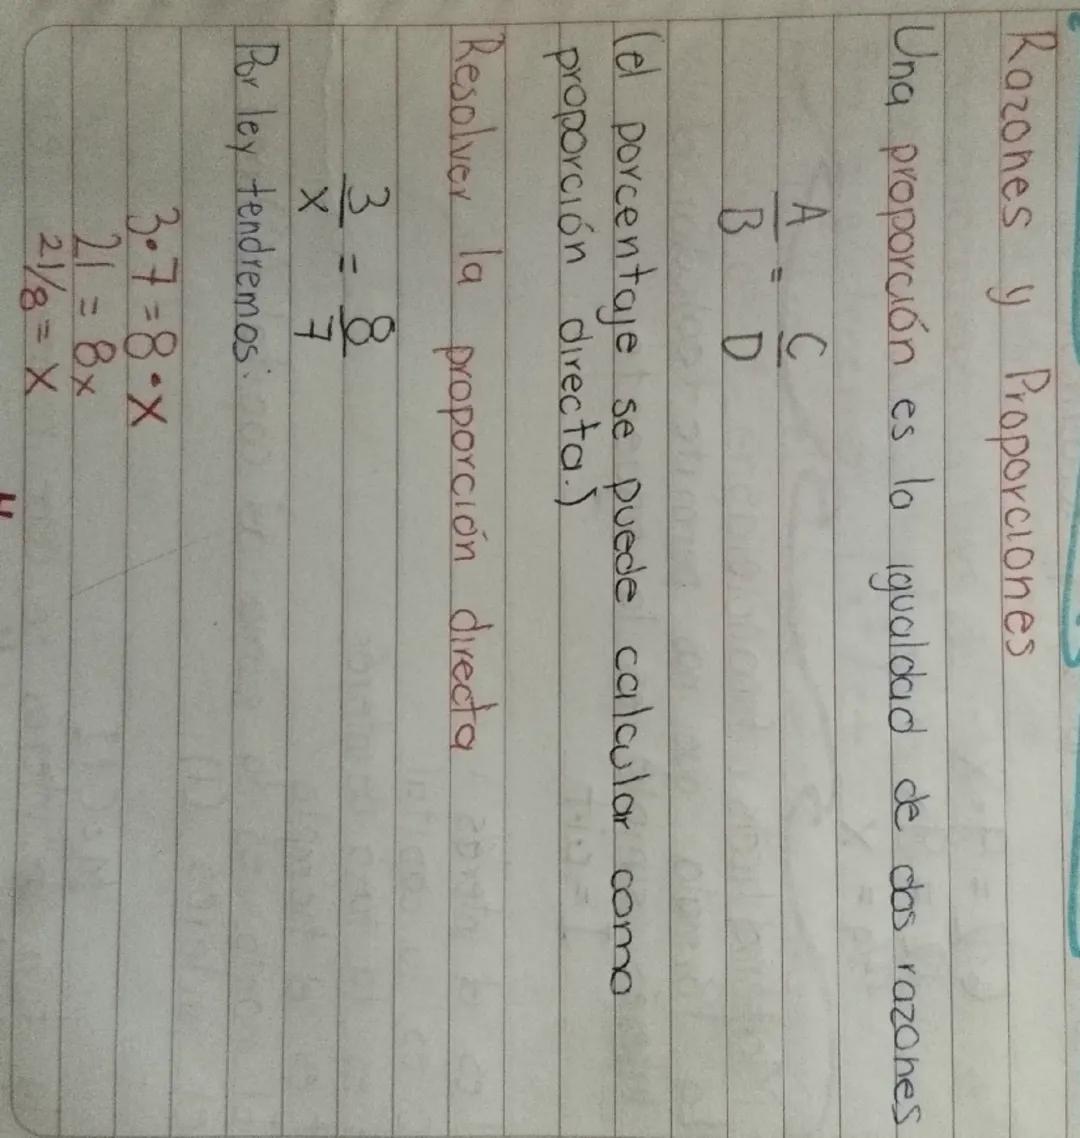 Razones y Proporciones
Una proporción es la igualdad de dos razones
A/B = C/D
(el porcentaje se puede calcular como
proporción directa.)
Resolver la proporción directa
3/x = 8/7
Por ley tendremos:
3·7=8·x
21=8x
21/8=x